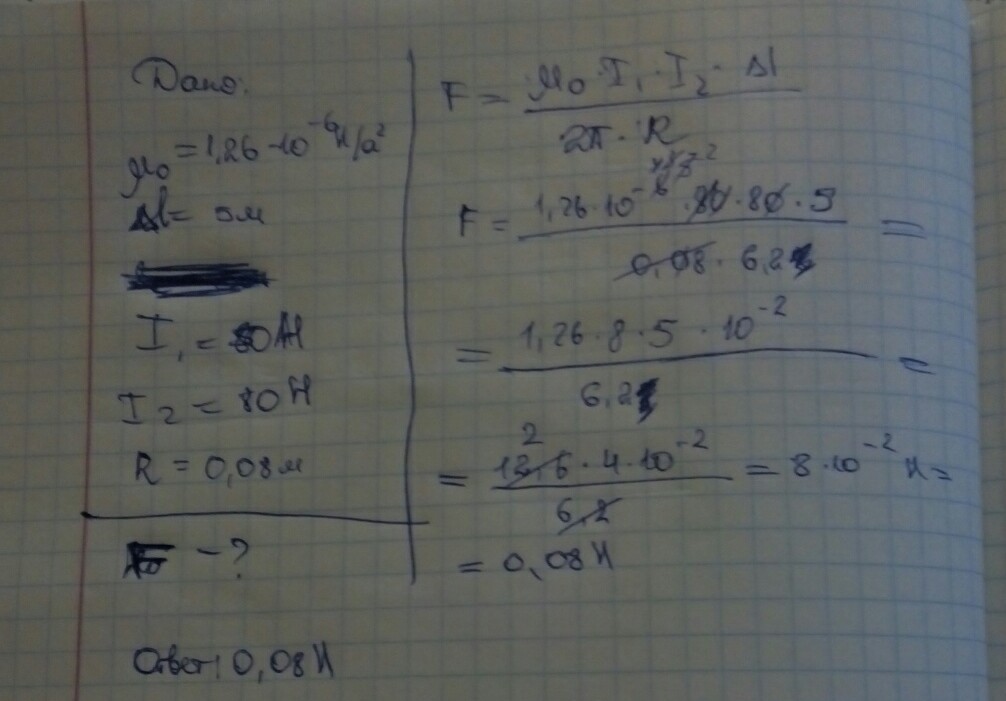 Дано:
μ₀ = 1,26·10⁻⁶Н/а²
Δl = 5м
I₁ = 80А
I₂ = 80
R = 0,08м
F – ?
F = (μ₀ · I₁ · I₂ · Δl) / (2π · R)
F = (1,26·10⁻⁶ · 80 · 80 · 5) / (0,08 · 6,2) =
= (1,26 · 8 · 5 · 10⁻²) / 6,2 =
= (12,6 · 4 · 10⁻²) / 6,2 = 8 · 10⁻² Н =
= 0,08Н
Ответ: 0,08Н